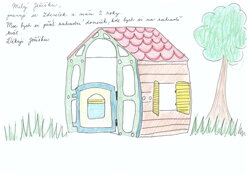 Milý Ježíšku,
jmenuji se Zdeněček a mám 2 roky.
Moc bych si přál zahradní domeček, kde bych si na zahradě
hrál.
Děkuji Ježíšku